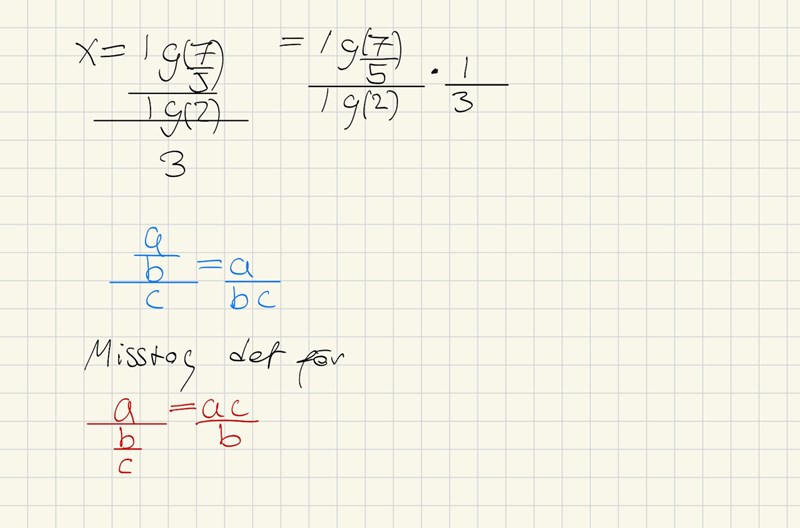 x = lg(7/5)/lg(2)/3 = lg(7/5)/lg(2) · 1/3
a/b/c = a/bc
Misstog det för
a/b/c = ac/b